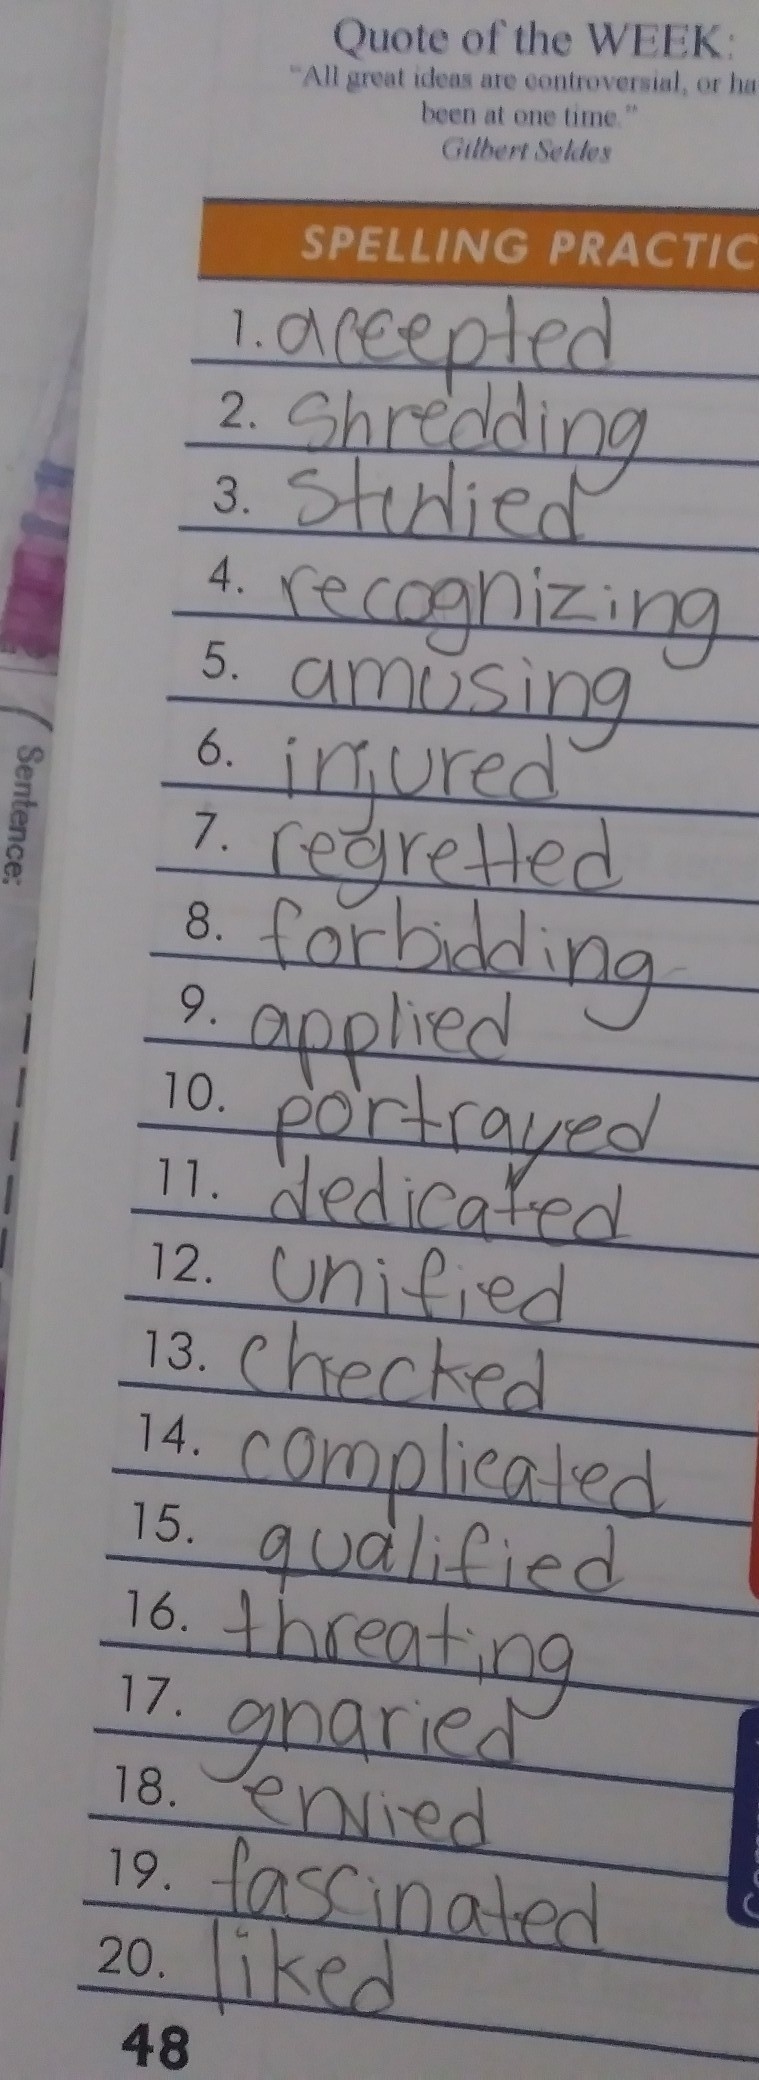 Quote of the WEEK:
"All great ideas are controversial, or ha
been at one time."
Gilbert Seldes
SPELLING PRACTIC
1. accepted
2. Shredding
3. Studied
4. recognizing
5. amusing
6. injured
7. regretted
8. forbidding
9. applied
10. portrayed
11. dedicated
12. unified
13. checked
14. complicated
15. qualified
16. threating
17. gnaried
18. envied
19. fascinated
20. liked
48
Sentence: